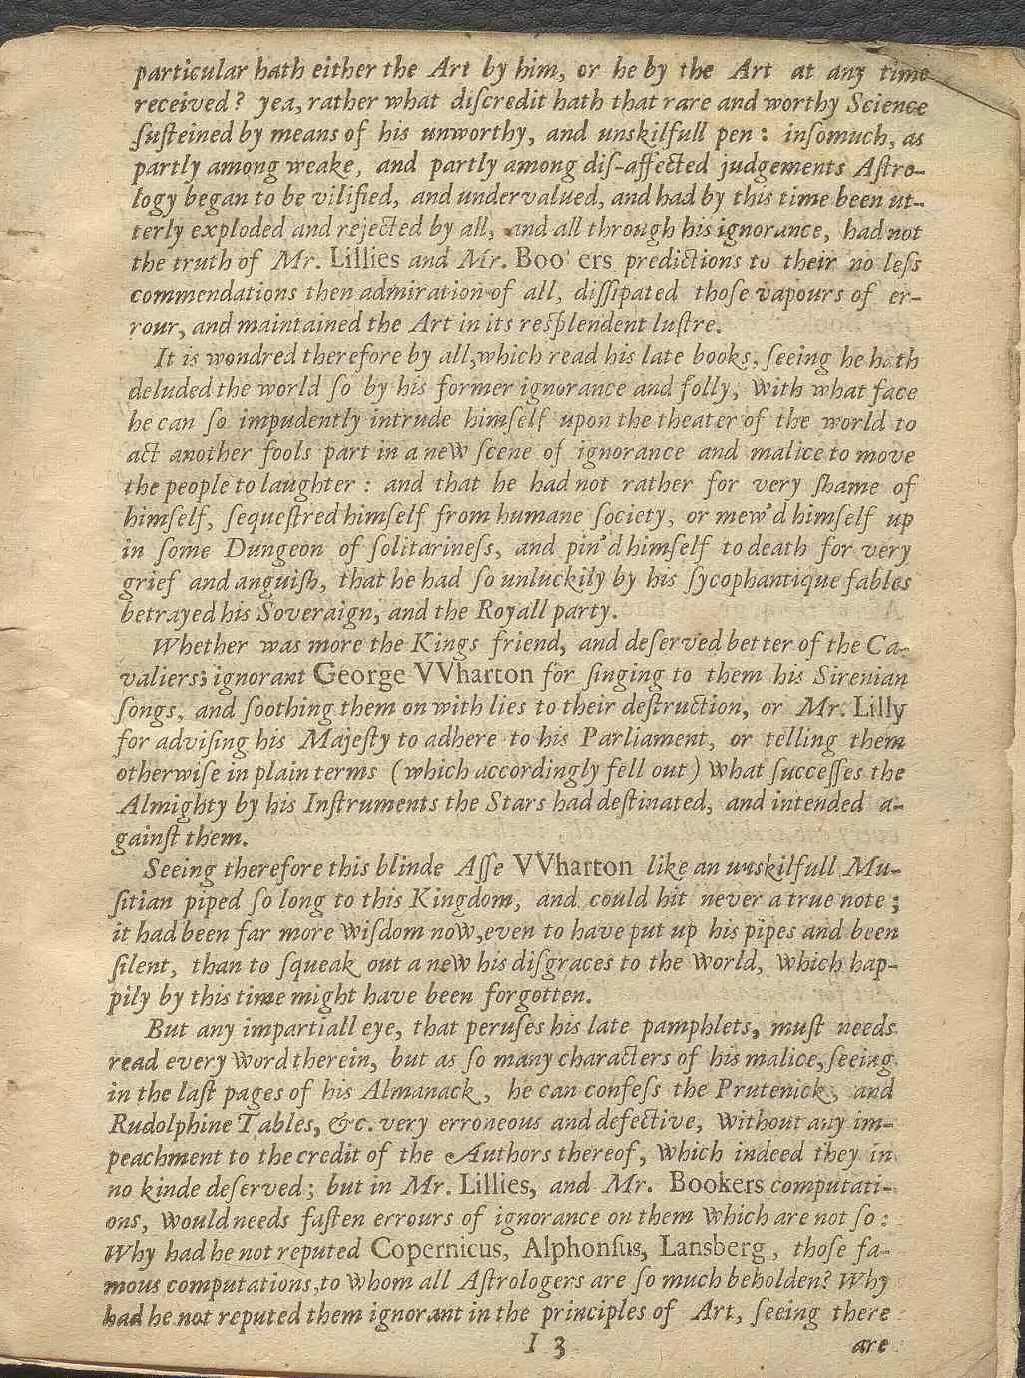 particular hath either the Art by him, or he by the Art at any time
received? yea, rather what diſcredit hath that rare and worthy Science
ſuſteined by means of his unworthy, and unskilfull pen: inſomuch, as
partly among weake, and partly among diſ-affected judgements Aſtro-
logy began to be vilified, and undervalued, and had by this time been ut-
terly exploded and rejected by all, and all through his ignorance, had not
the truth of Mr. Lillies and Mr. Boo ers predictions to their no leſs
commendations then admiration of all, diſſipated thoſe vapours of er-
rour, and maintained the Art in its reſplendent luſtre.
It is wondred therefore by all, which read his late books, ſeeing he hath
deluded the world ſo by his former ignorance and folly, With what face
he can ſo impudently intrude himſelf upon the theater of the world to
act another fools part in a new ſcene of ignorance and malice to move
the people to laughter: and that he had not rather for very ſhame of
himſelf, ſequeſtred himſelf from humane ſociety, or mew'd himſelf up
in ſome Dungeon of ſolitarineſs, and pin'd himſelf to death for very
grief and anguiſh, that he had ſo unluckily by his ſycophantique fables
betrayed his Soveraign, and the Royall party.
Whether was more the Kings friend, and deſerved better of the Ca-
valiers; ignorant George VVharton for ſinging to them his Sirenian
ſongs, and ſoothing them on with lies to their deſtruction, or Mr. Lilly
for adviſing his Majeſty to adhere to his Parliament, or telling them
otherwiſe in plain terms (which accordingly fell out) What ſucceſſes the
Almighty by his Inſtruments the Stars had deſtinated, and intended a-
gainſt them.
Seeing therefore this blinde Aſſe VVharton like an unskilfull Mu-
ſitian piped ſo long to this Kingdom, and could hit never a true note;
it had been far more Wiſdom now, even to have put up his pipes and been
ſilent, than to ſqueak out a new his diſgraces to the World, Which hap-
pily by this time might have been forgotten.
But any impartiall eye, that peruſes his late pamphlets, muſt needs
read every Word therein, but as ſo many characters of his malice, ſeeing
in the laſt pages of his Almanack, he can confeſs the Prutenick, and
Rudolphine Tables, &c. very erroneous and defective, Without any im-
peachment to the credit of the Authors thereof, Which indeed they in
no kinde deſerved; but in Mr. Lillies, and Mr. Bookers computati-
ons, Would needs faſten errours of ignorance on them Which are not ſo:
Why had he not reputed Copernicus, Alphonſus, Lansberg, thoſe fa-
mous computations, to Whom all Aſtrologers are ſo much beholden? Why
had he not reputed them ignorant in the principles of Art, ſeeing there
I 3 are